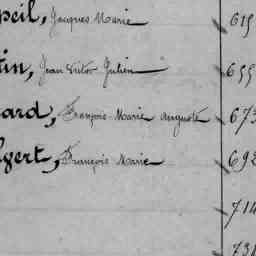 peil, Jacques Marie 615
tin, Jean Victor Julien 655
ard, François Marie Auguste 673
yert, François Marie 692
714
731